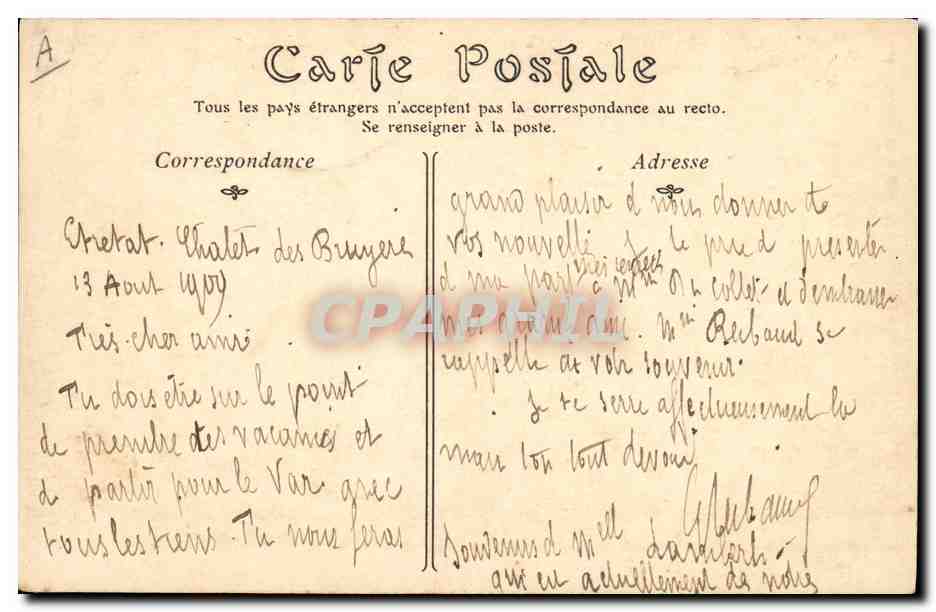 A
Carte Postale
Tous les pays étrangers n'acceptent pas la correspondance au recto.
Se renseigner à la poste.
Correspondance
Etretat. Chalet des Bruyere
13 Aout 1909
Très cher ami
Tu dois être sur le point
de prendre des vacances et
d partir pour le Var avec
tous les tiens. Tu nous feras
Adresse
grand plaisir d nous donner de
vos nouvelle J te prie d presenter
d ma part mes respects
à Mme Collet et d'embrasser
mes Mme Rebaud se
rappelle à votr souvenir.
Je te serre affectueusement la
main ton tout devoué
Souvenirs d Mell Lambert
qui est actuellement des notres
CPAPHIL